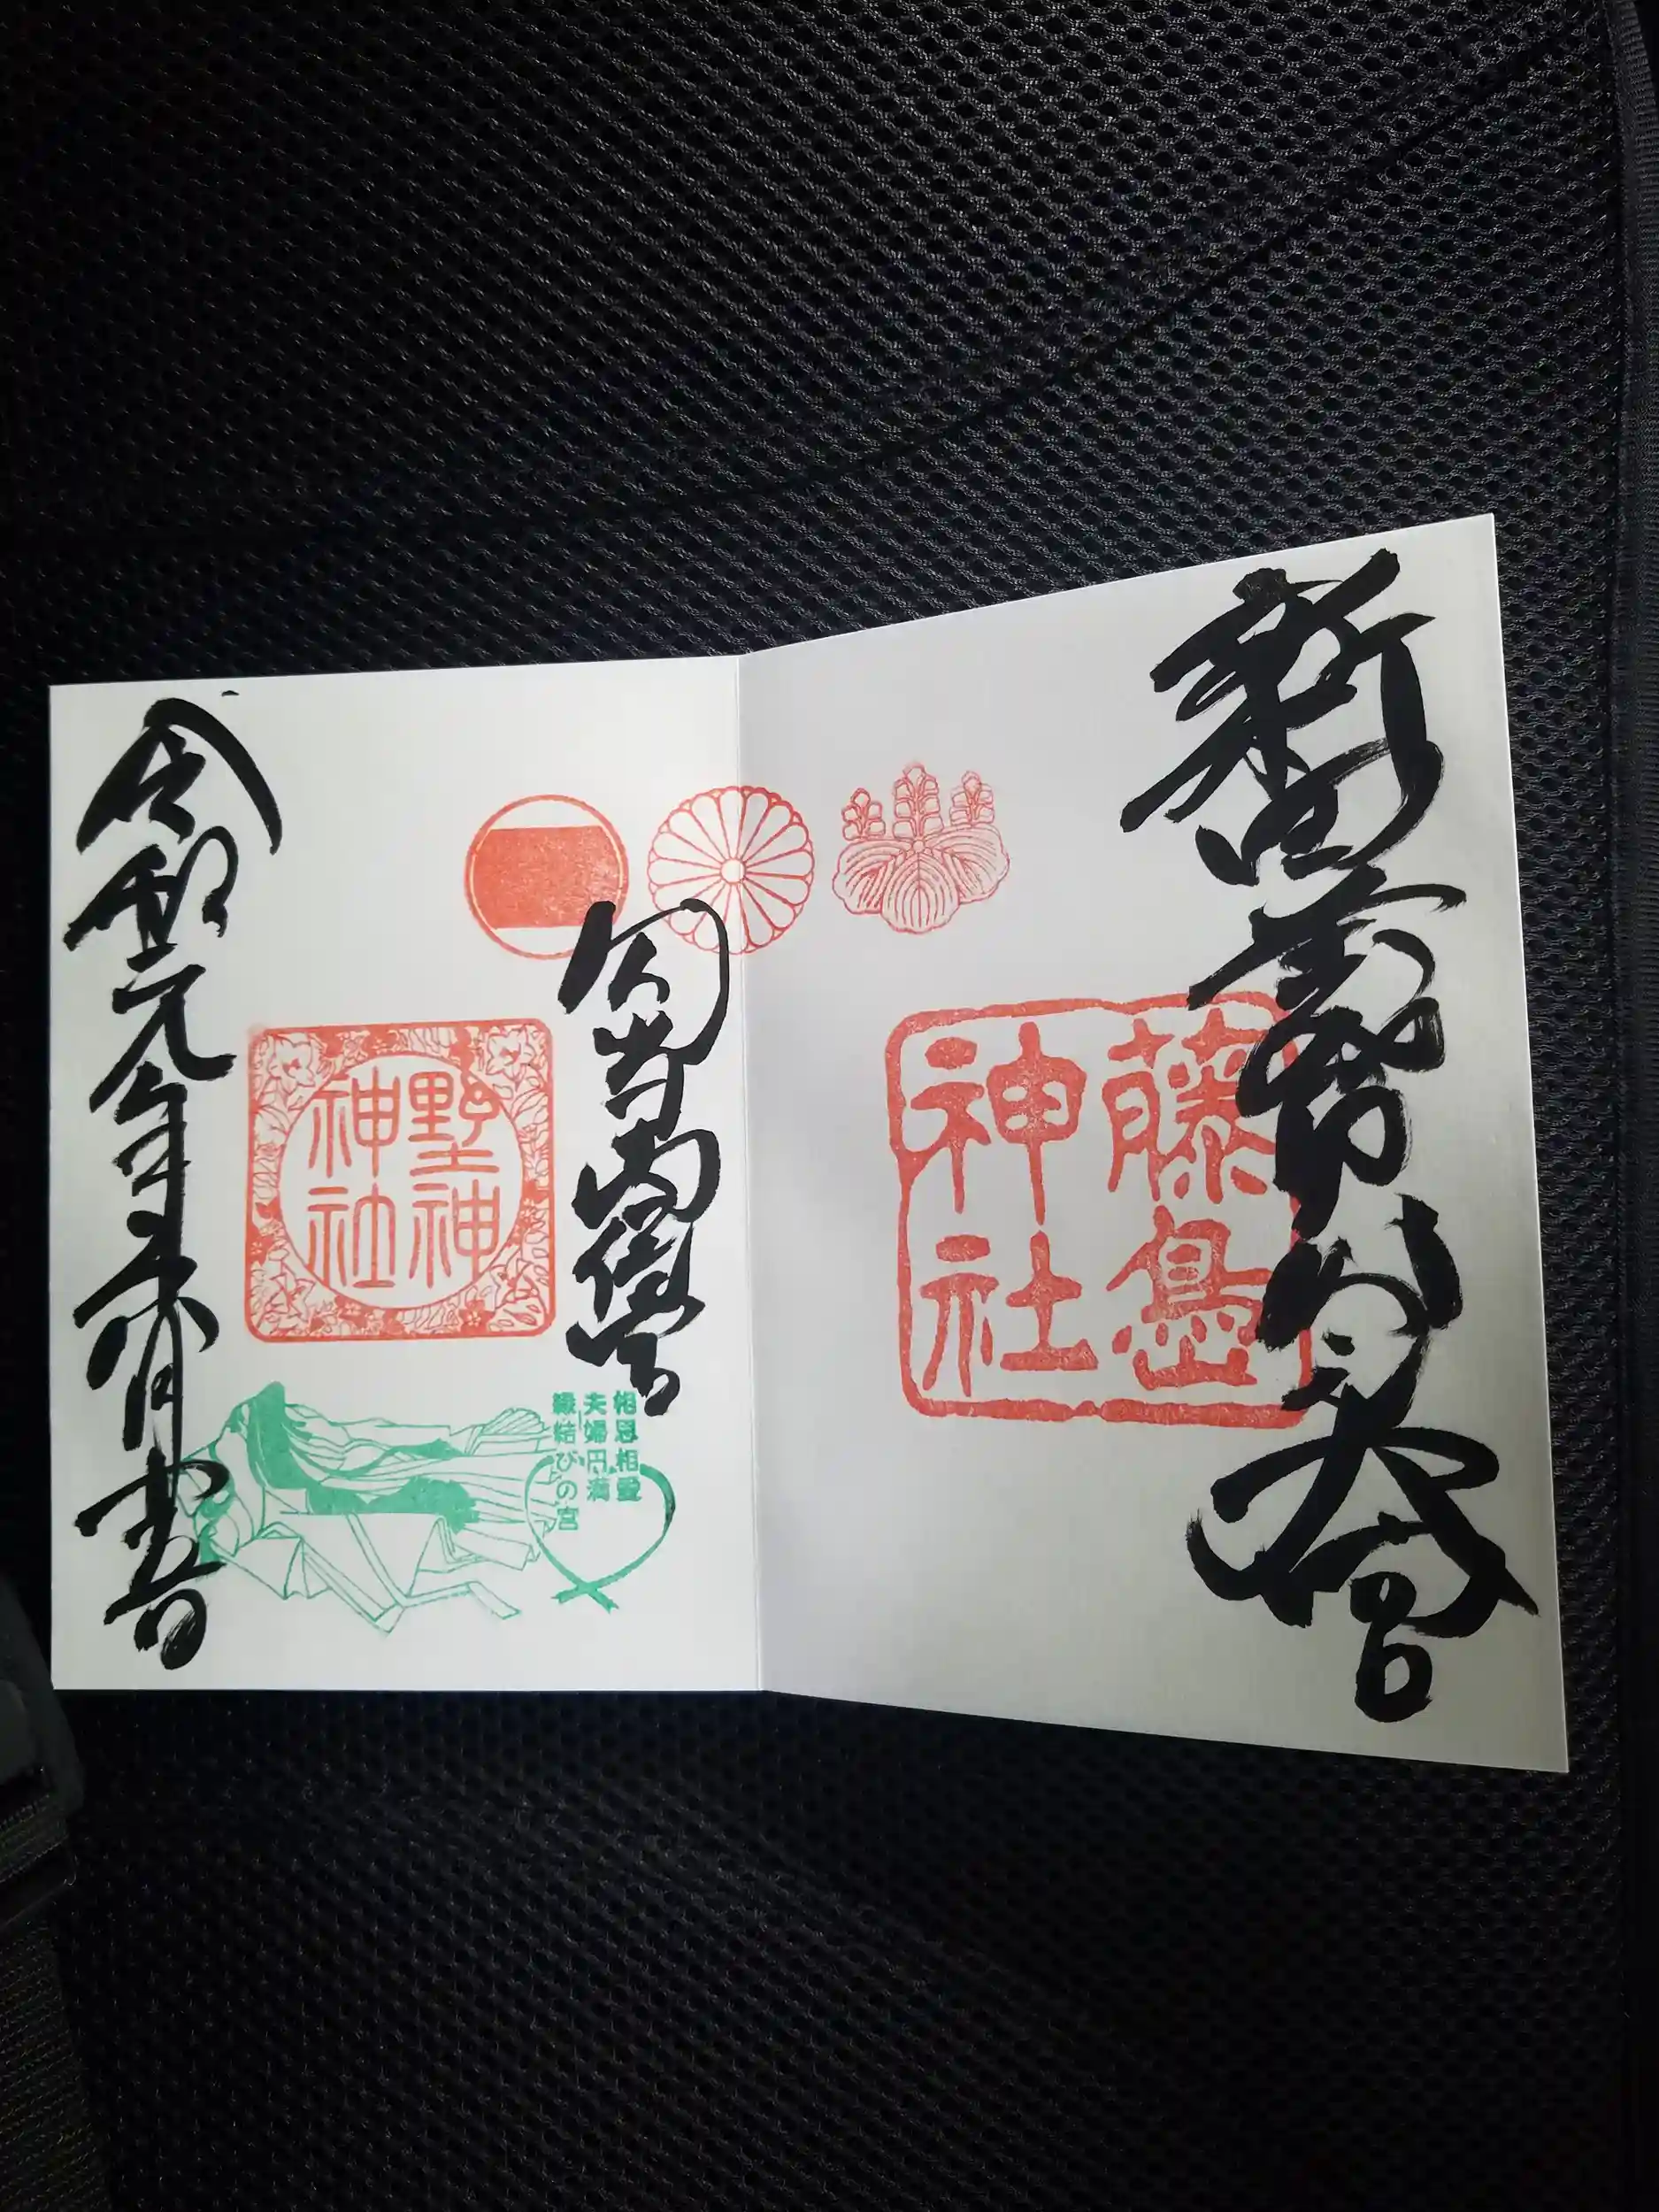 新田義貞公
藤島
神社
勾当内侍宮
野神
神社
相思相愛
夫婦円満
縁結びの宮
令和元年